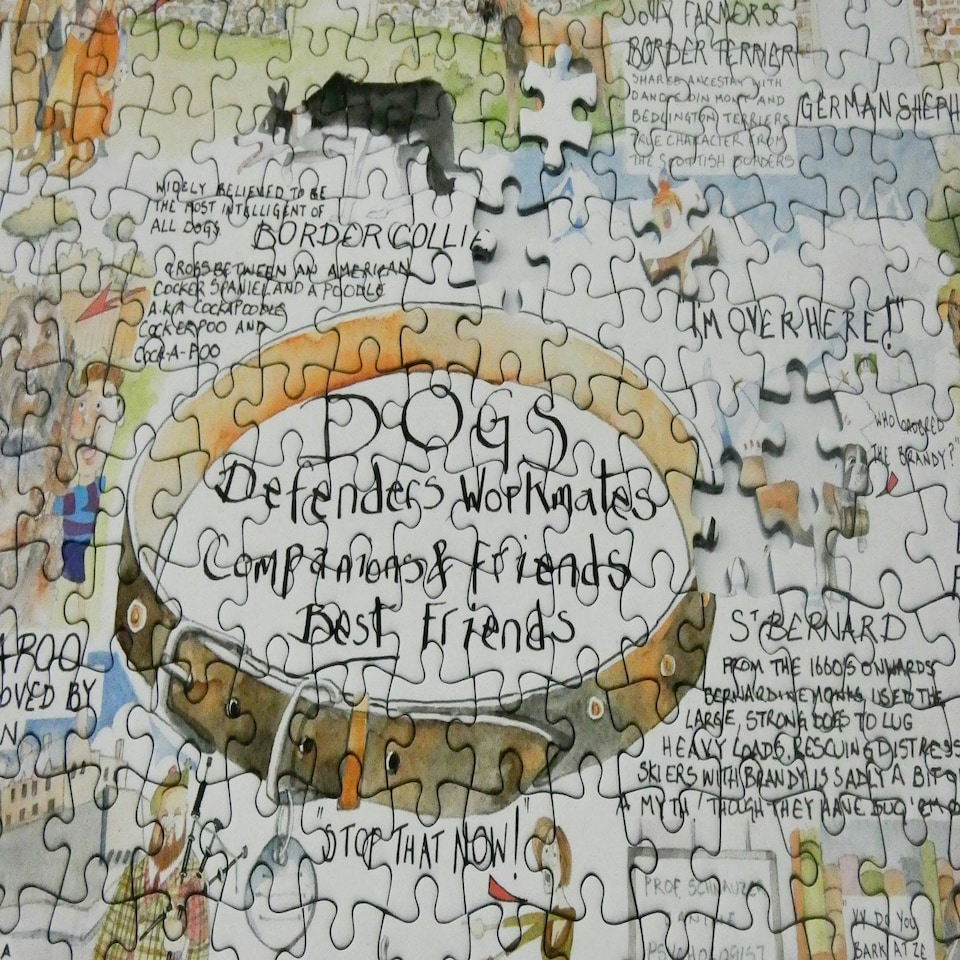 JOLLY FARMERS
BORDER TERRIER
SHARES ANCESTRY WITH
DANDIE DIN MONT AND
BEDLINGTON TERRIERS
TRUE CHARACTER FROM
THE SCOTTISH BORDERS
GERMAN SHEPH
WIDELY BELIEVED TO BE
THE MOST INTELLIGENT OF
ALL DOGS
BORDER COLLIE
CROSS BETWEEN AN AMERICAN
COCKER SPANIEL AND A POODLE
A.K.A COCKAPOODLE
COCKERPOO AND
COCK-A-POO
"I'M OVER HERE!"
WHO
THE BRANDY?"
DOGS
Defenders Workmates
Companions & Friends
Best Friends
APOO
OVED BY
N
ST BERNARD
FROM THE 1660'S ONWARDS
BERNARDINE MONKS USED THE
LARGE, STRONG DOGS TO LUG
HEAVY LOADS. RESCUING DISTRESS
SKIERS WITH BRANDY IS SADLY A BIT O
A MYTH! THOUGH THEY HAVE DUG 'EM O
"STOP THAT NOW!"
PROF SCHNAUZER
CANINE
PSYCHOLOGIST
"VY DO YOU
BARK AT ZE
A